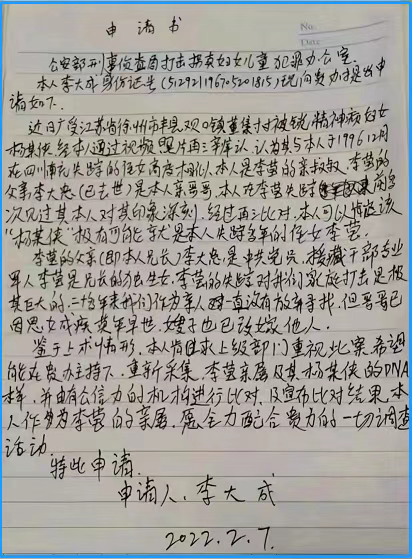 申请书
No.
公安部刑事侦查局打击拐卖妇女儿童犯罪办公室
本人李大成身份证号(512921196705201815)现向贵办提出申
请如下.
近日广受江苏省徐州市丰县欢口镇董集村被铁精神病妇女
杨某侠,经本人通过视频照片再三辨认,认为其与本人于1996 12月
在四川南充失踪的侄女高度相似,本人是李莹的亲叔叔,李莹的
父亲李大忠(已去世)是本人亲哥哥 本人在李莹失踪前多
次见过其本人对其印象深刻.经过再三比对,本人可以肯定该
"杨某侠"极有可能就是本人失踪多年的侄女李莹.
李莹的父亲(即本人兄长)李大忠是中共党员、援藏干部专业
军人李莹是兄长的独生女,李莹的失踪对我们家庭打击是极
其巨大的,二十多年来我们作为亲人对一直没有放弃寻找,但哥哥已
因思女成疾英年早世,嫂子也已改嫁他人.
鉴于上术情形,本人肯求上级部门重视此案希望
能在贵办主持下,重新采集,李莹亲属及其杨某侠的DNA
样,并由有公信力的机构进行比对,及宣布比对结果,本
人作为李莹的亲属,愿全力配合贵办的一切调查
活动.
特此申请.
申请人:李大成
2022.2.7.